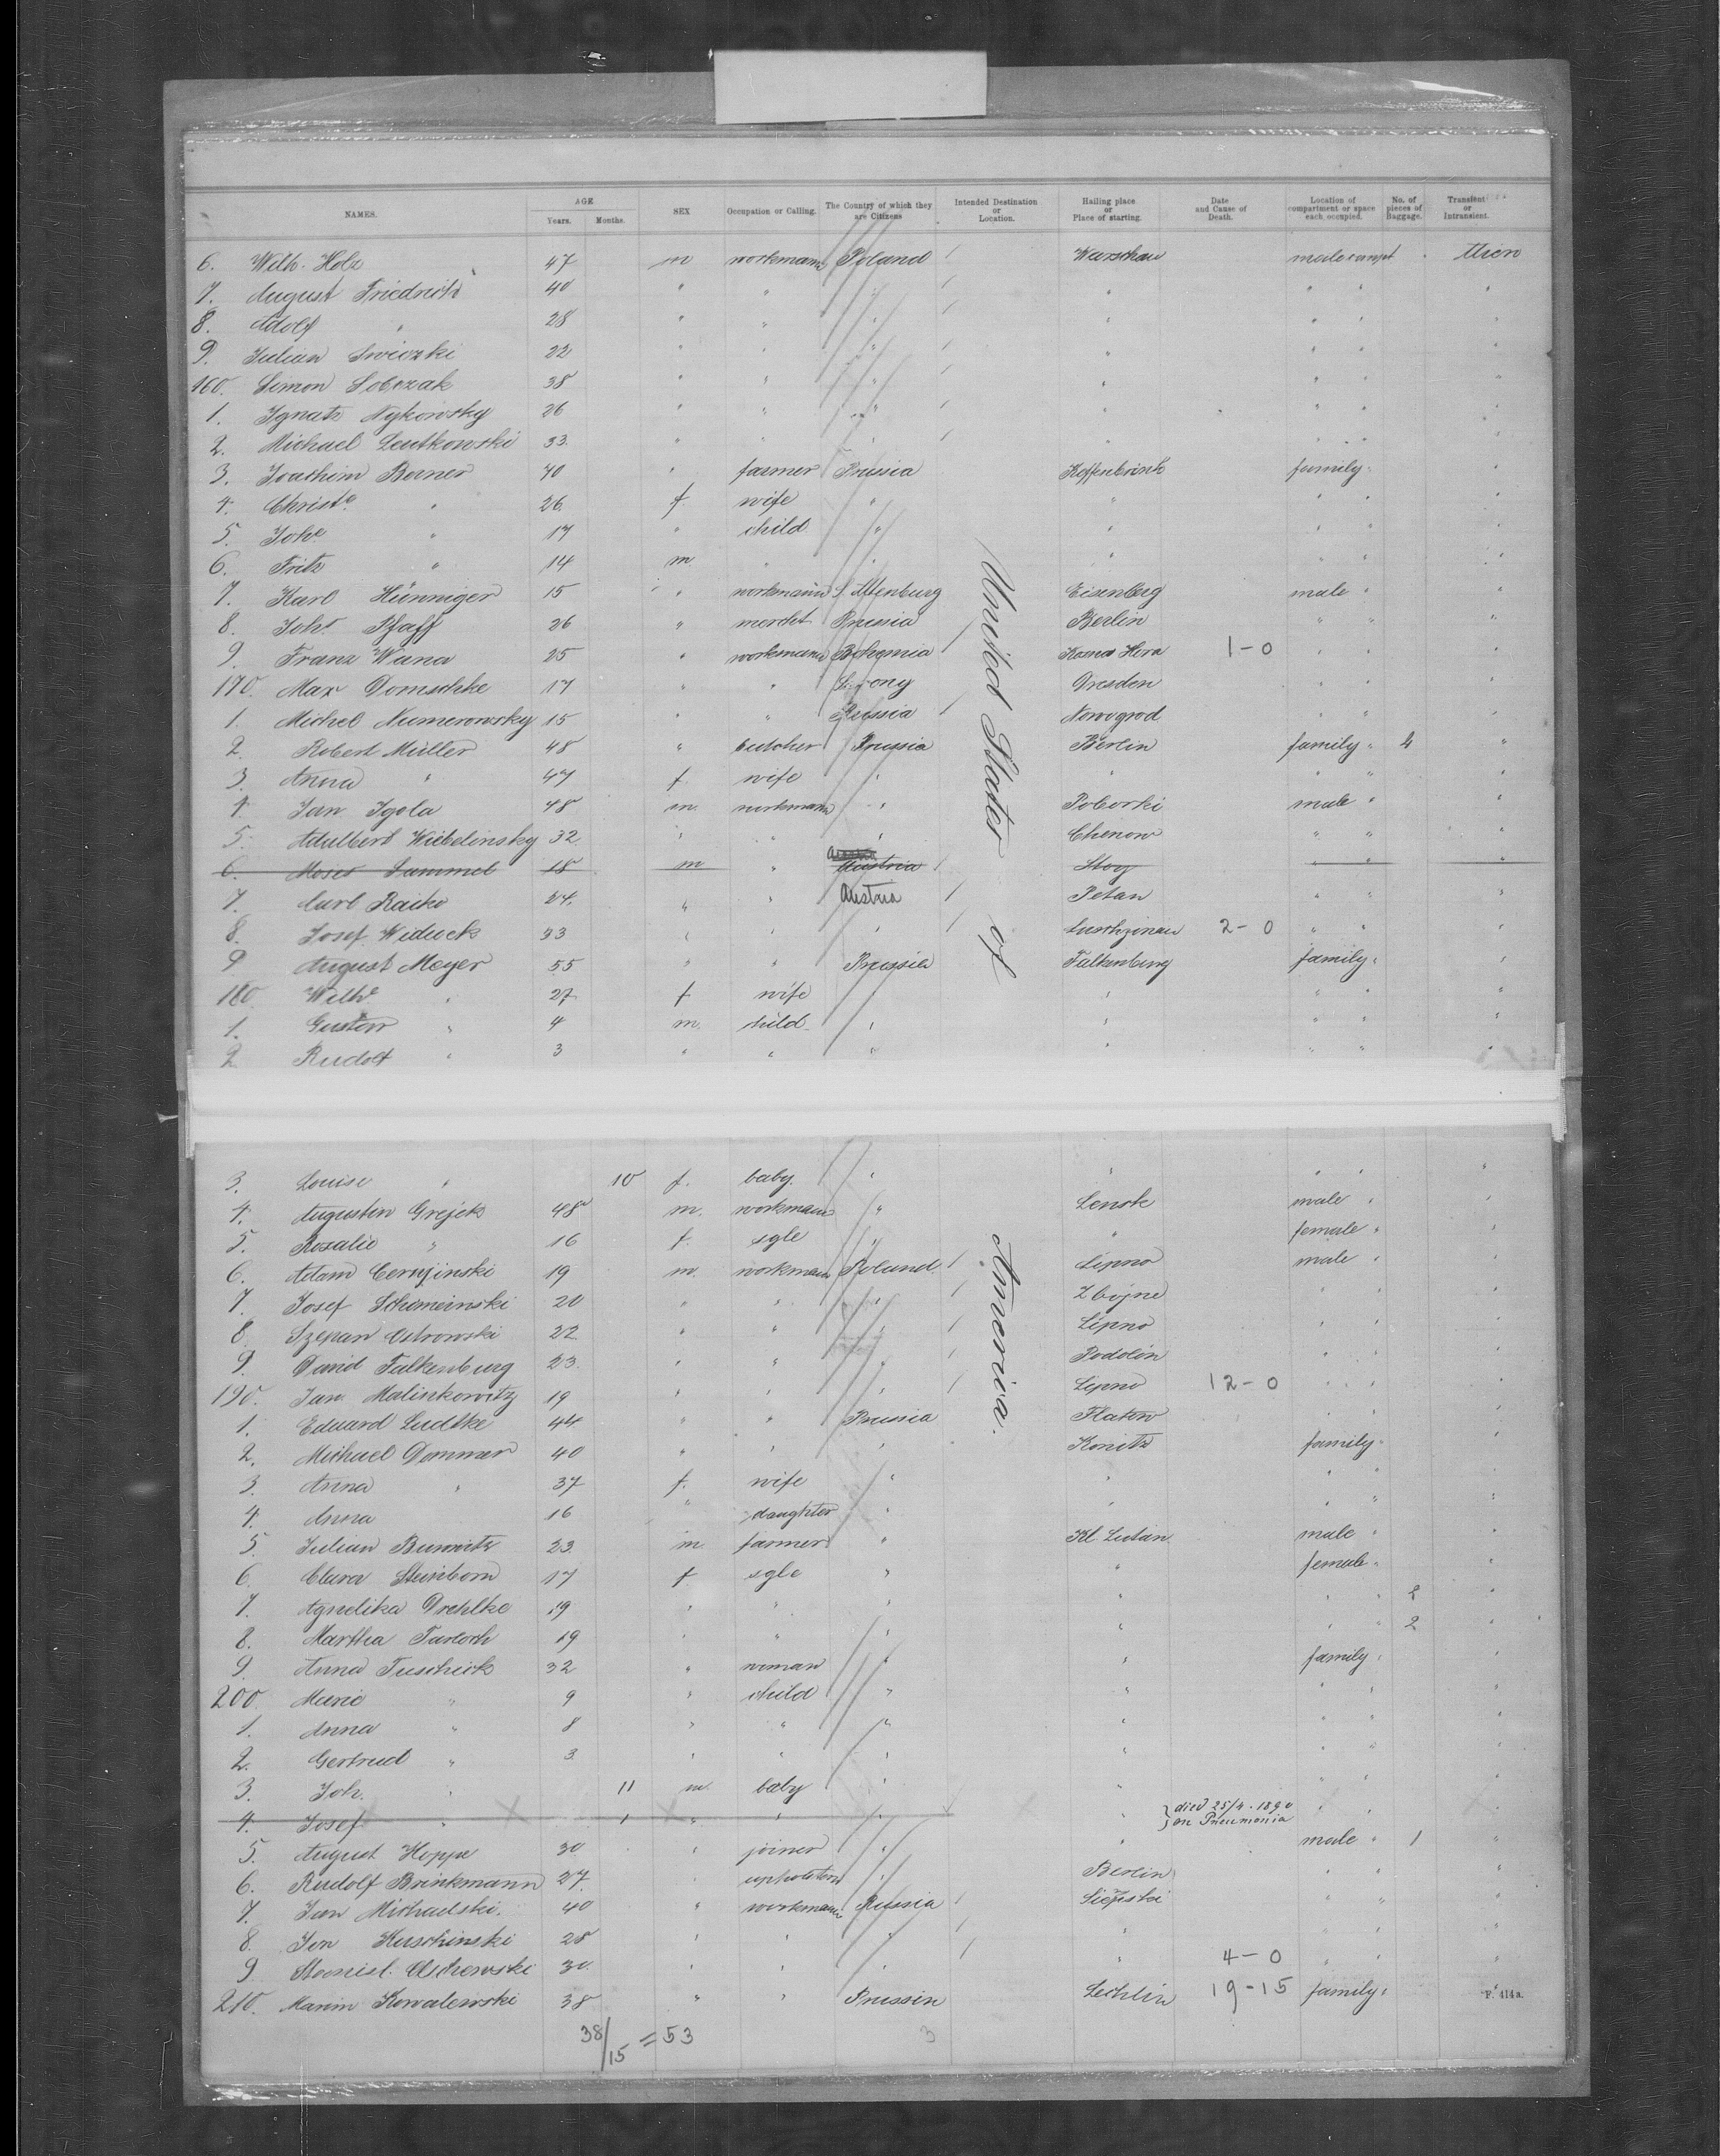 NAMES. AGE Years. Months. SEX Occupation or Calling. The Country of which they are Citizens Intended Destination or Location. Hailing place or Place of starting. Date and Cause of Death. Location of compartment or space each occupied. No. of pieces of Baggage. Transient or Intransient.
6. Wilh. Holz 47 m workmann Poland Warschau male compt
7. August Friedrich 40 " " " " " " "
8. Adolf " 28 " " " " " " "
9. Julian 22 " " " " " " "
160. Simon Sobczak 38 " " " " " " "
1. Ignatz Nykowsky 26 " " " " " " "
2. Michael Leutkowski 33 " " " " " " "
3. Joachim Borner 40 " farmer Prussia family " "
4. Christe " 26 f wife " " " " "
5. Johe " 17 " child " " " " "
6. Fritz " 14 m " " " " " "
7. Karl Hünniger 15 " workmann S. Altenburg Eisenberg male " "
8. Johs Pfaff 26 " mercht Prussia Berlin " " "
9. Franz Wana 25 " workmann Bohemia 1-0 " " "
170. Max Domschke 17 " " Dresden " " "
1. Michel Numerowsky 15 " " Russia Nowogrod " " "
2. Robert Müller 48 " butcher Prussia Berlin family " 4 "
3. Anna " 47 f wife " " " " "
4. Jan Igola 48 m. workmann " Poborki male " "
5. Adalbert Wiebelinsky 32 " " " Chenow " " "
6. Moses Sammel 18 m " Austria Stog " "
7. Carl Raiko 24 " " Austria Petan " " "
8. Josef Widuck 33 " " " 2-0 " " "
9 August Meyer 55 " " Prussia Falkenberg family " "
180 Wilhe " 27 f wife " " " " "
1. Gustav " 4 m. child " " " " "
2 Rudolf " 3 " " " " " " "
3. Louise " 10 f. baby. " " " " "
4. Augustin Grejek 48 m. workmann " Lensk male " "
5. Rosalie " 16 f. sgle " " female " "
6. Adam Cerujinski 19 m. workmann Poland Lipno male " "
7. Josef Schimeinski 20 " " " Zbojne " " "
8. Szepan Ostrowski 22 " " " Lipno " " "
9. David Falkenburg 23. " " " Podolin " " "
190. Jan Malinkowitz 19 " " " Lipno 12-0 " " "
1. Eduard Ludtke 44 " " Prussia Flatow " " "
2. Michael Dommer 40 " " " Konitz family " "
3. Anna " 37 f. wife " " " " "
4. Anna 16 " daughter " " " " "
5. Julian Buwitz 23 m farmer " Kl. Lutan male " "
6. Clara Steinborn 17 f sgle " " female " "
7. Agnelika Drehlke 19 " " " " " " "
8. Martha Tarloch 19 " " " " " " 2 "
9. Anna Tuschick 32 " woman " " family " "
200. Marie " 9 " child " " " " "
1. Anna " 8 " " " " " " "
2. Gertrud " 3 " " " " " " "
3. Joh. " 11 m. baby " " " " "
4. Josef " 1 " " " " died 25/4. 1890 on Pneumonia " " "
5. August Hoppe 30 " joiner " " male " 1 "
6. Rudolf Brinkmann 27. " " Berlin " " "
7. Jan Michaelski. 40 " workmann Russia " " "
8. Jon Kuschinski 28 " " " " " " "
9. Stanisl. Olschewski 30 " " " " 4-0 " " "
210. Kowalewski 38 " " Prussia Lechlin 19-15 family "
United States of America.
38/15 = 53 3
F. 414a.